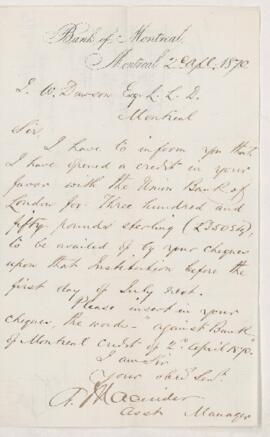 Bank of Montreal,
Montreal 2d Apl. 1870
J. W. Dawson Esq. L. L. D.
Montreal
Sir,
I have to inform you that
I have opened a credit in your
favor with the Union Bank of
London for Three hundred and
fifty pounds sterling (£350 Stg)
to be availed of by your cheques
upon that Institution before the
first day of July next.
Please insert in your
cheques, the words "against Bank
of Montreal credit of 2d April 1870."
I am Sir
Your obed. Servt.
Asst Manager